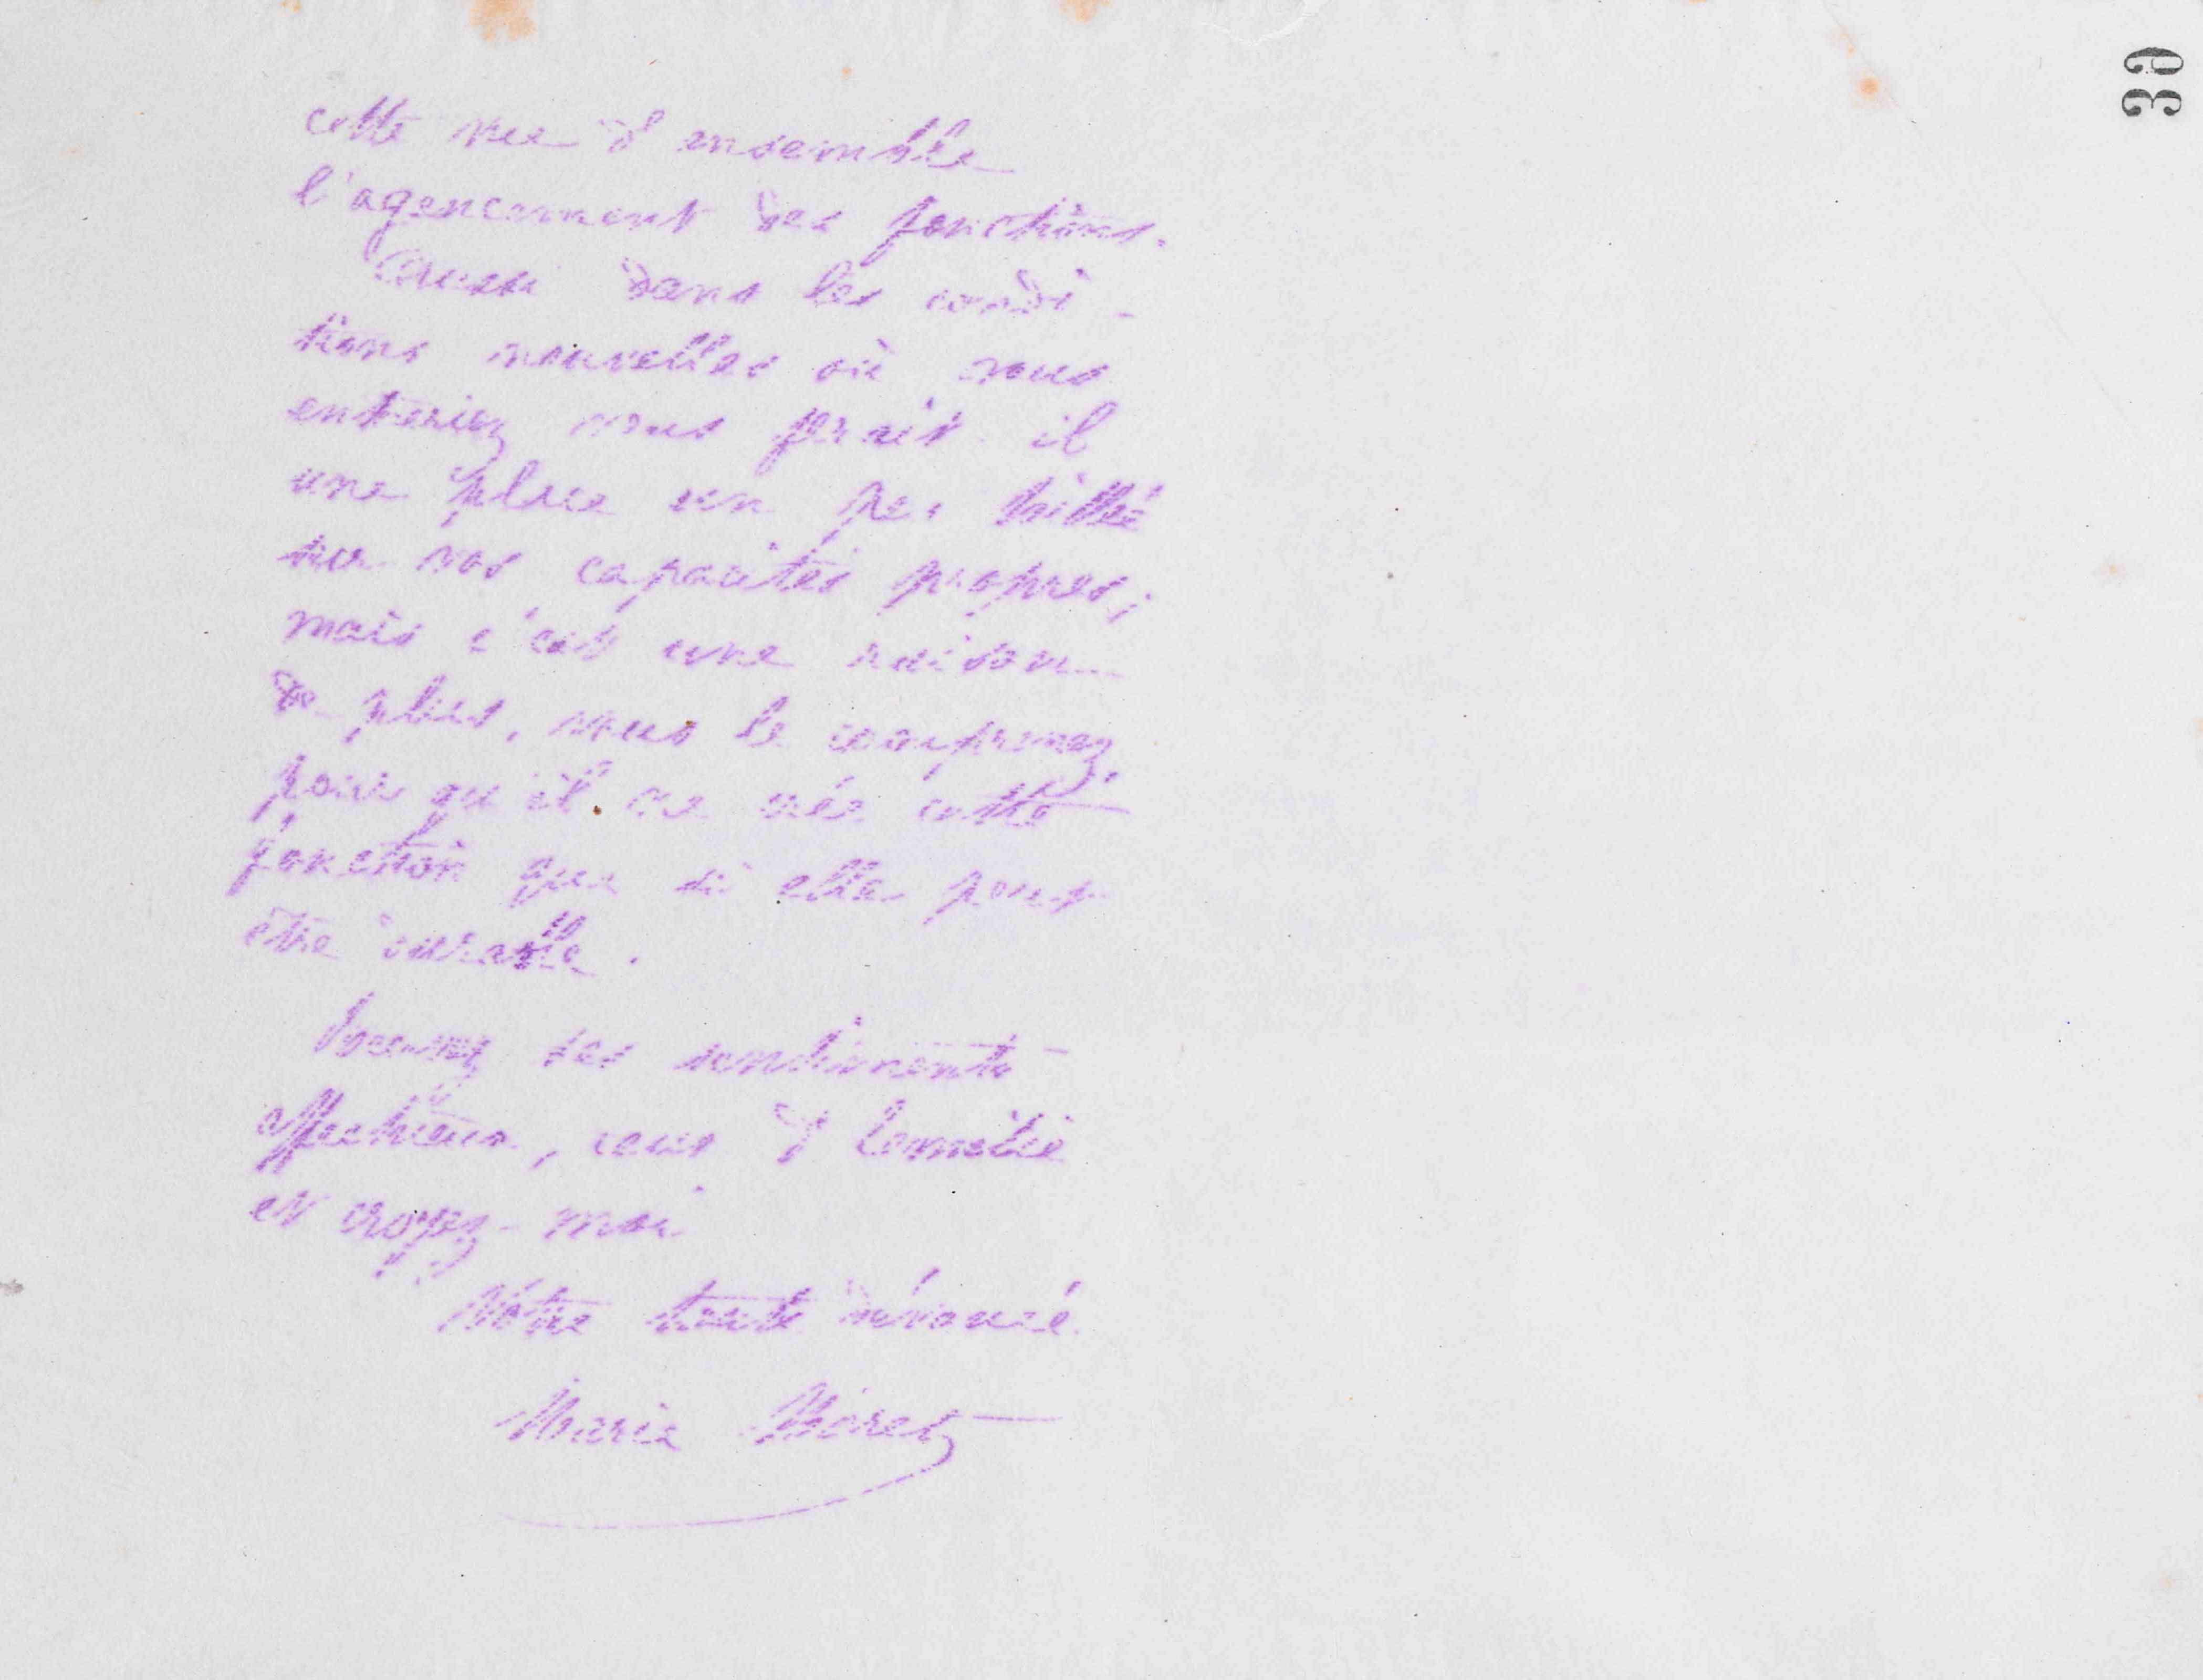 30
cette vue d'ensemble
l'agencement des fonctions.
Aussi dans les condi-
tions nouvelles où vous
entreriez vous ferait il
une place un peu taillée
sur vos capacités propres;
mais c'est une raison
de plus, vous le comprenez,
pour qu'il ne crée cette
fonction que si elle peut
être durable.
Recevez ses sentiments
affectueux, ceux d'Emilie
et croyez-moi
Vôtre toute dévouée
Marie Moret